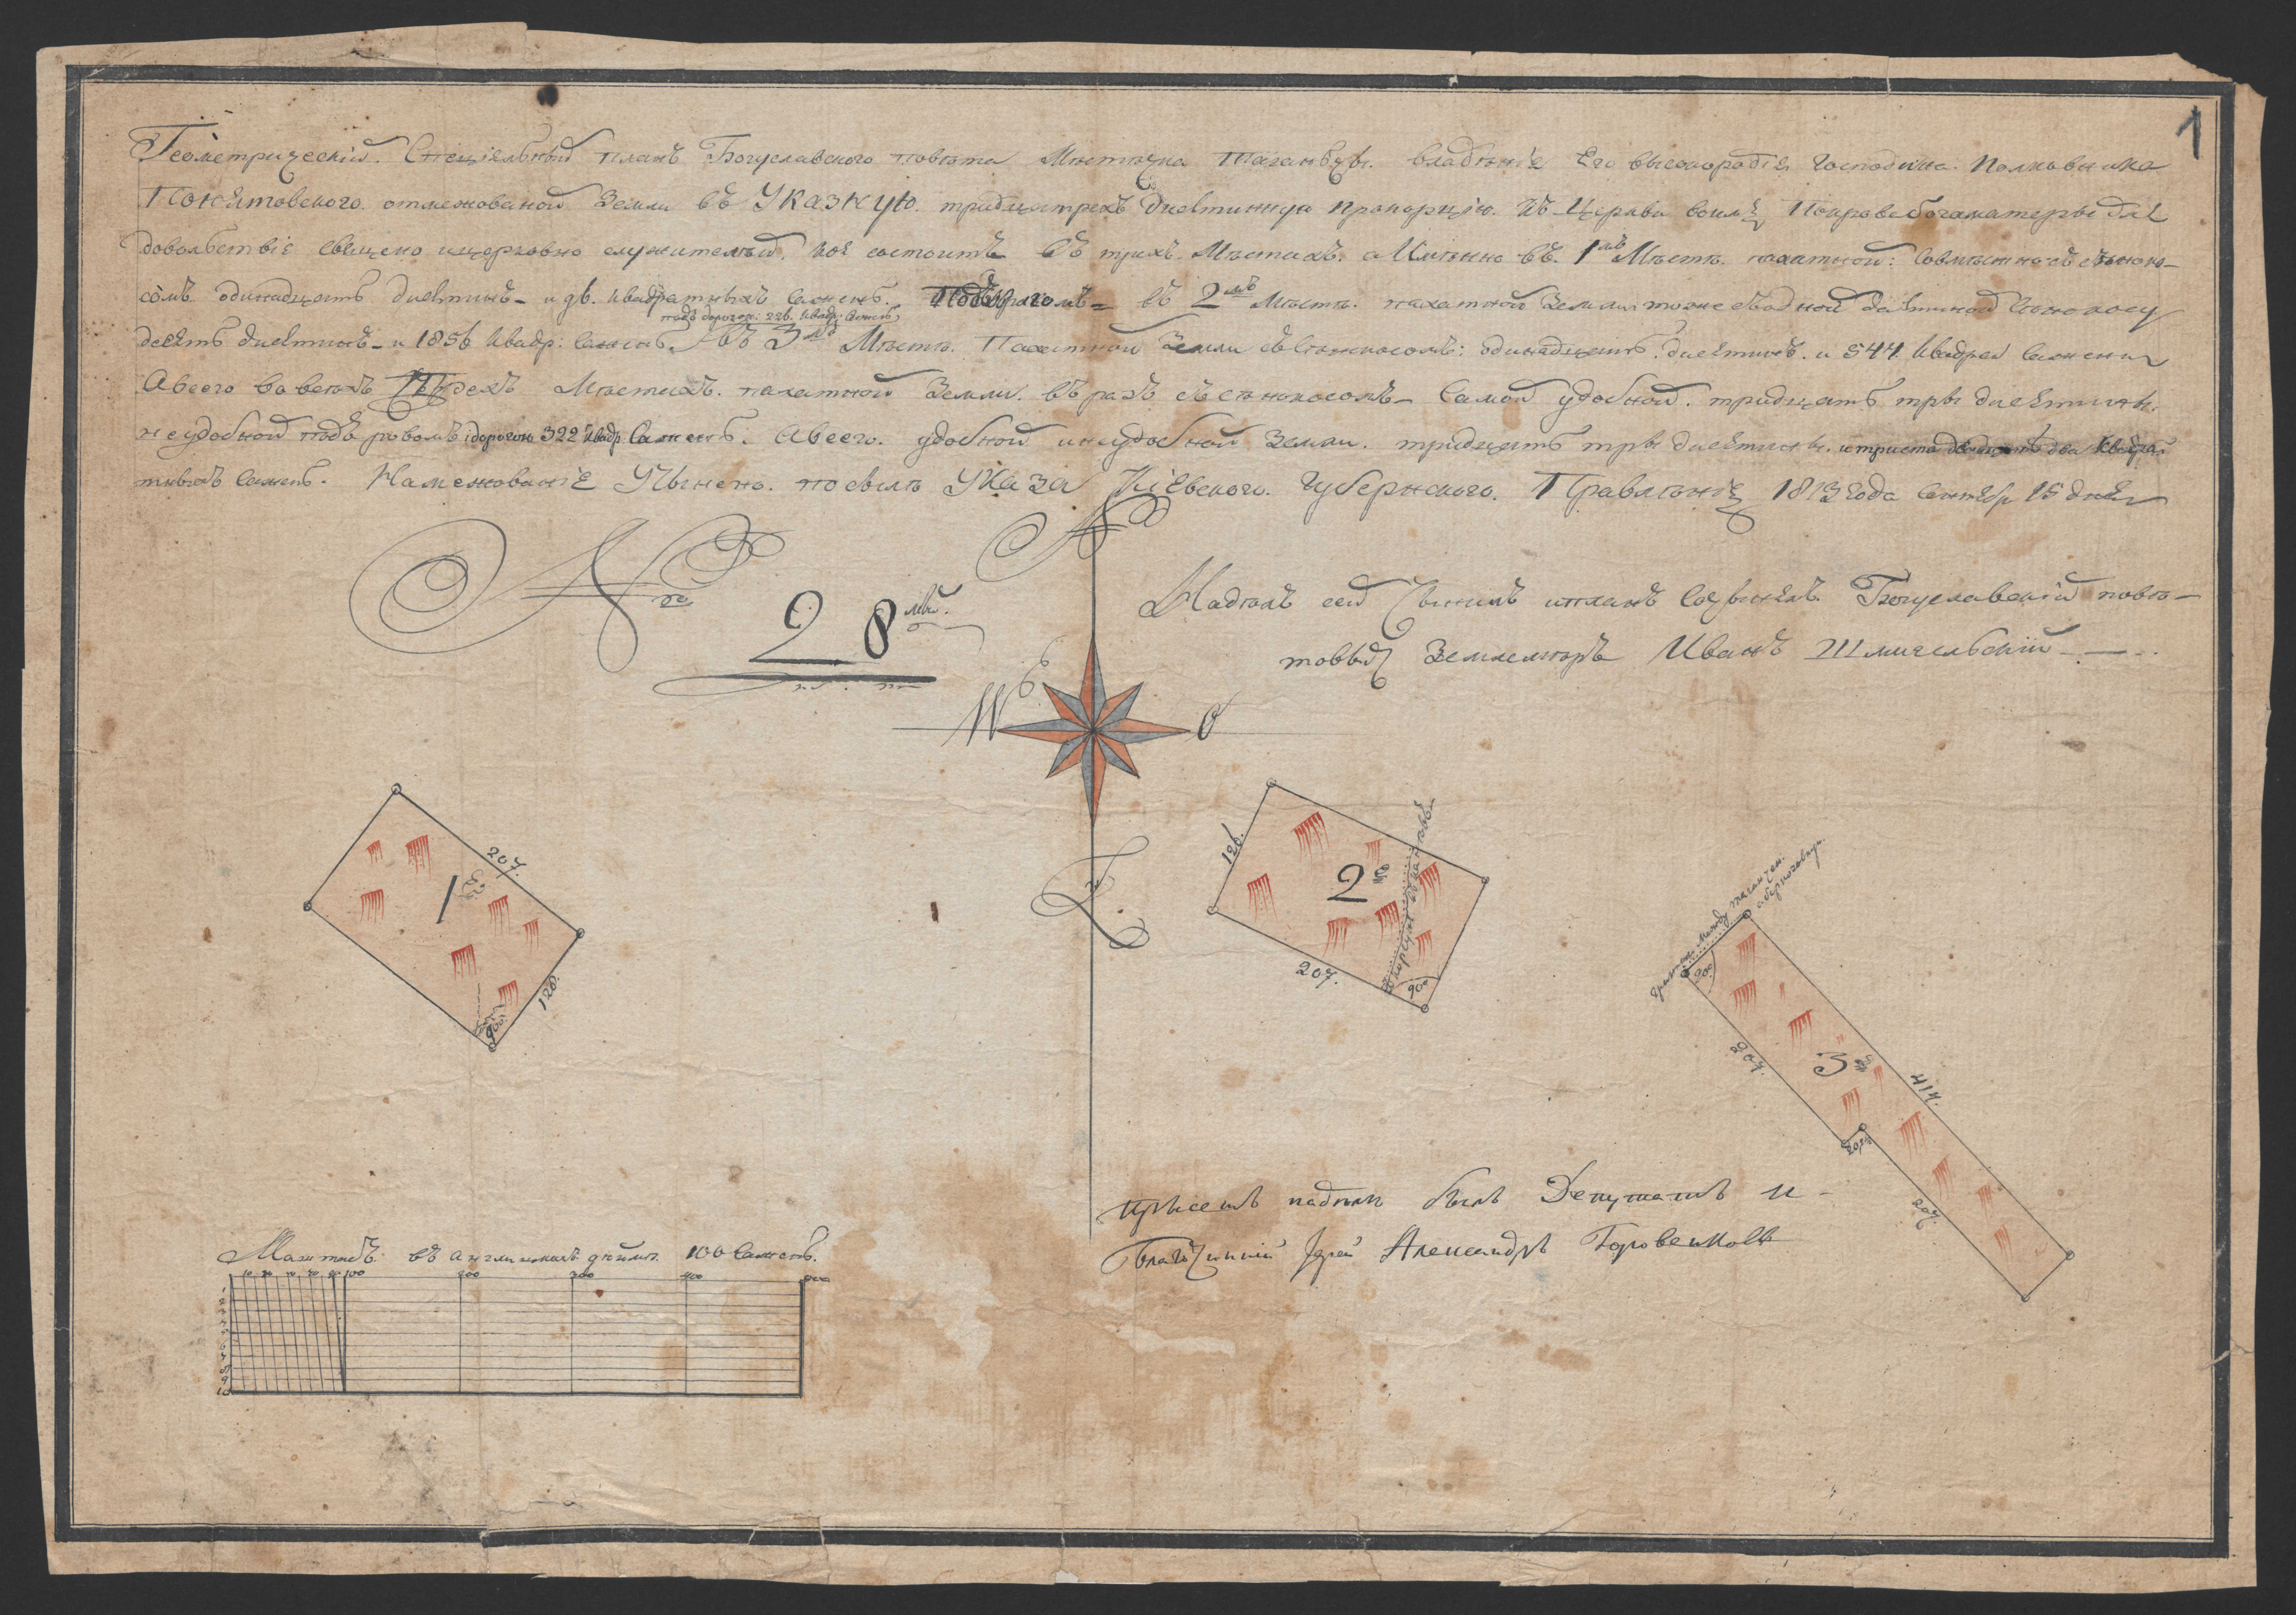 1
Геометрическій. Спеціяльный планъ Богуславского повѣта Мѣстечка Таганчы. владѣніе Его высокородія Господина. Полковника
Понятовского. отмежованой Земли въ Указную. тридцатрехъ Десятинную пропорцію. къ Церкви во имя Покрова богаматеры для
доволствіе священо ицерковно служителей, кое состоитъ въ трихъ. Мѣстахъ. а Имѣнно въ. 1мъ Мѣстѣ. пахатной: Совмѣстно съ сѣноко-
сомъ одинадцать Десятинъ - и 96. квадратныхъ Сажень. Подъ въ 2мъ Мѣстѣ. пахатной Земли тоже сѣнокосу
подъ дорогою: 226. квадр: Сажень
десять десятинъ - и 1856 квадр: Сажень. Въ 3мъ Мѣстѣ. Пахатной Земли съ Сѣнокосомъ: одинадцать. десятинъ. и 544 квадрат Сажени
Авсего во всѣхъ Трехъ Мѣстахъ. пахатной Земли. въ разъ съ сѣнокосомъ - Самой удобной. тридцать тры десятины.
неудобной подъ ровомъ і дорогою 322 квадр. Сажень. Авсего. удобной инеудобной Земли. тридцать тры десятины. и триста двадцать два квадра
тныхъ Сажень. Намежованіе Учинено. по силѣ Указа Кіевского. Губернского. Правленія 1813 года Сентябр 15 дня
N
28
Надѣлъ сей Учинилъ ипланъ Сочинялъ Богуславскій повѣ-
товый Землемѣръ Иванъ Шмигельскій
W O
207.
1е
120.
90
126.
2е
207.
90
граница между таганчею.
90
207.
3е
414.
20
207.
При семъ надѣлѣ былъ Депутатъ и -
Благочинній Іерей Александръ
Маштабъ: въ англинскомъ дюймѣ. 100 Сажень.
10 100 200 300 400 500
1
2
3
4
5
6
7
8
9
10